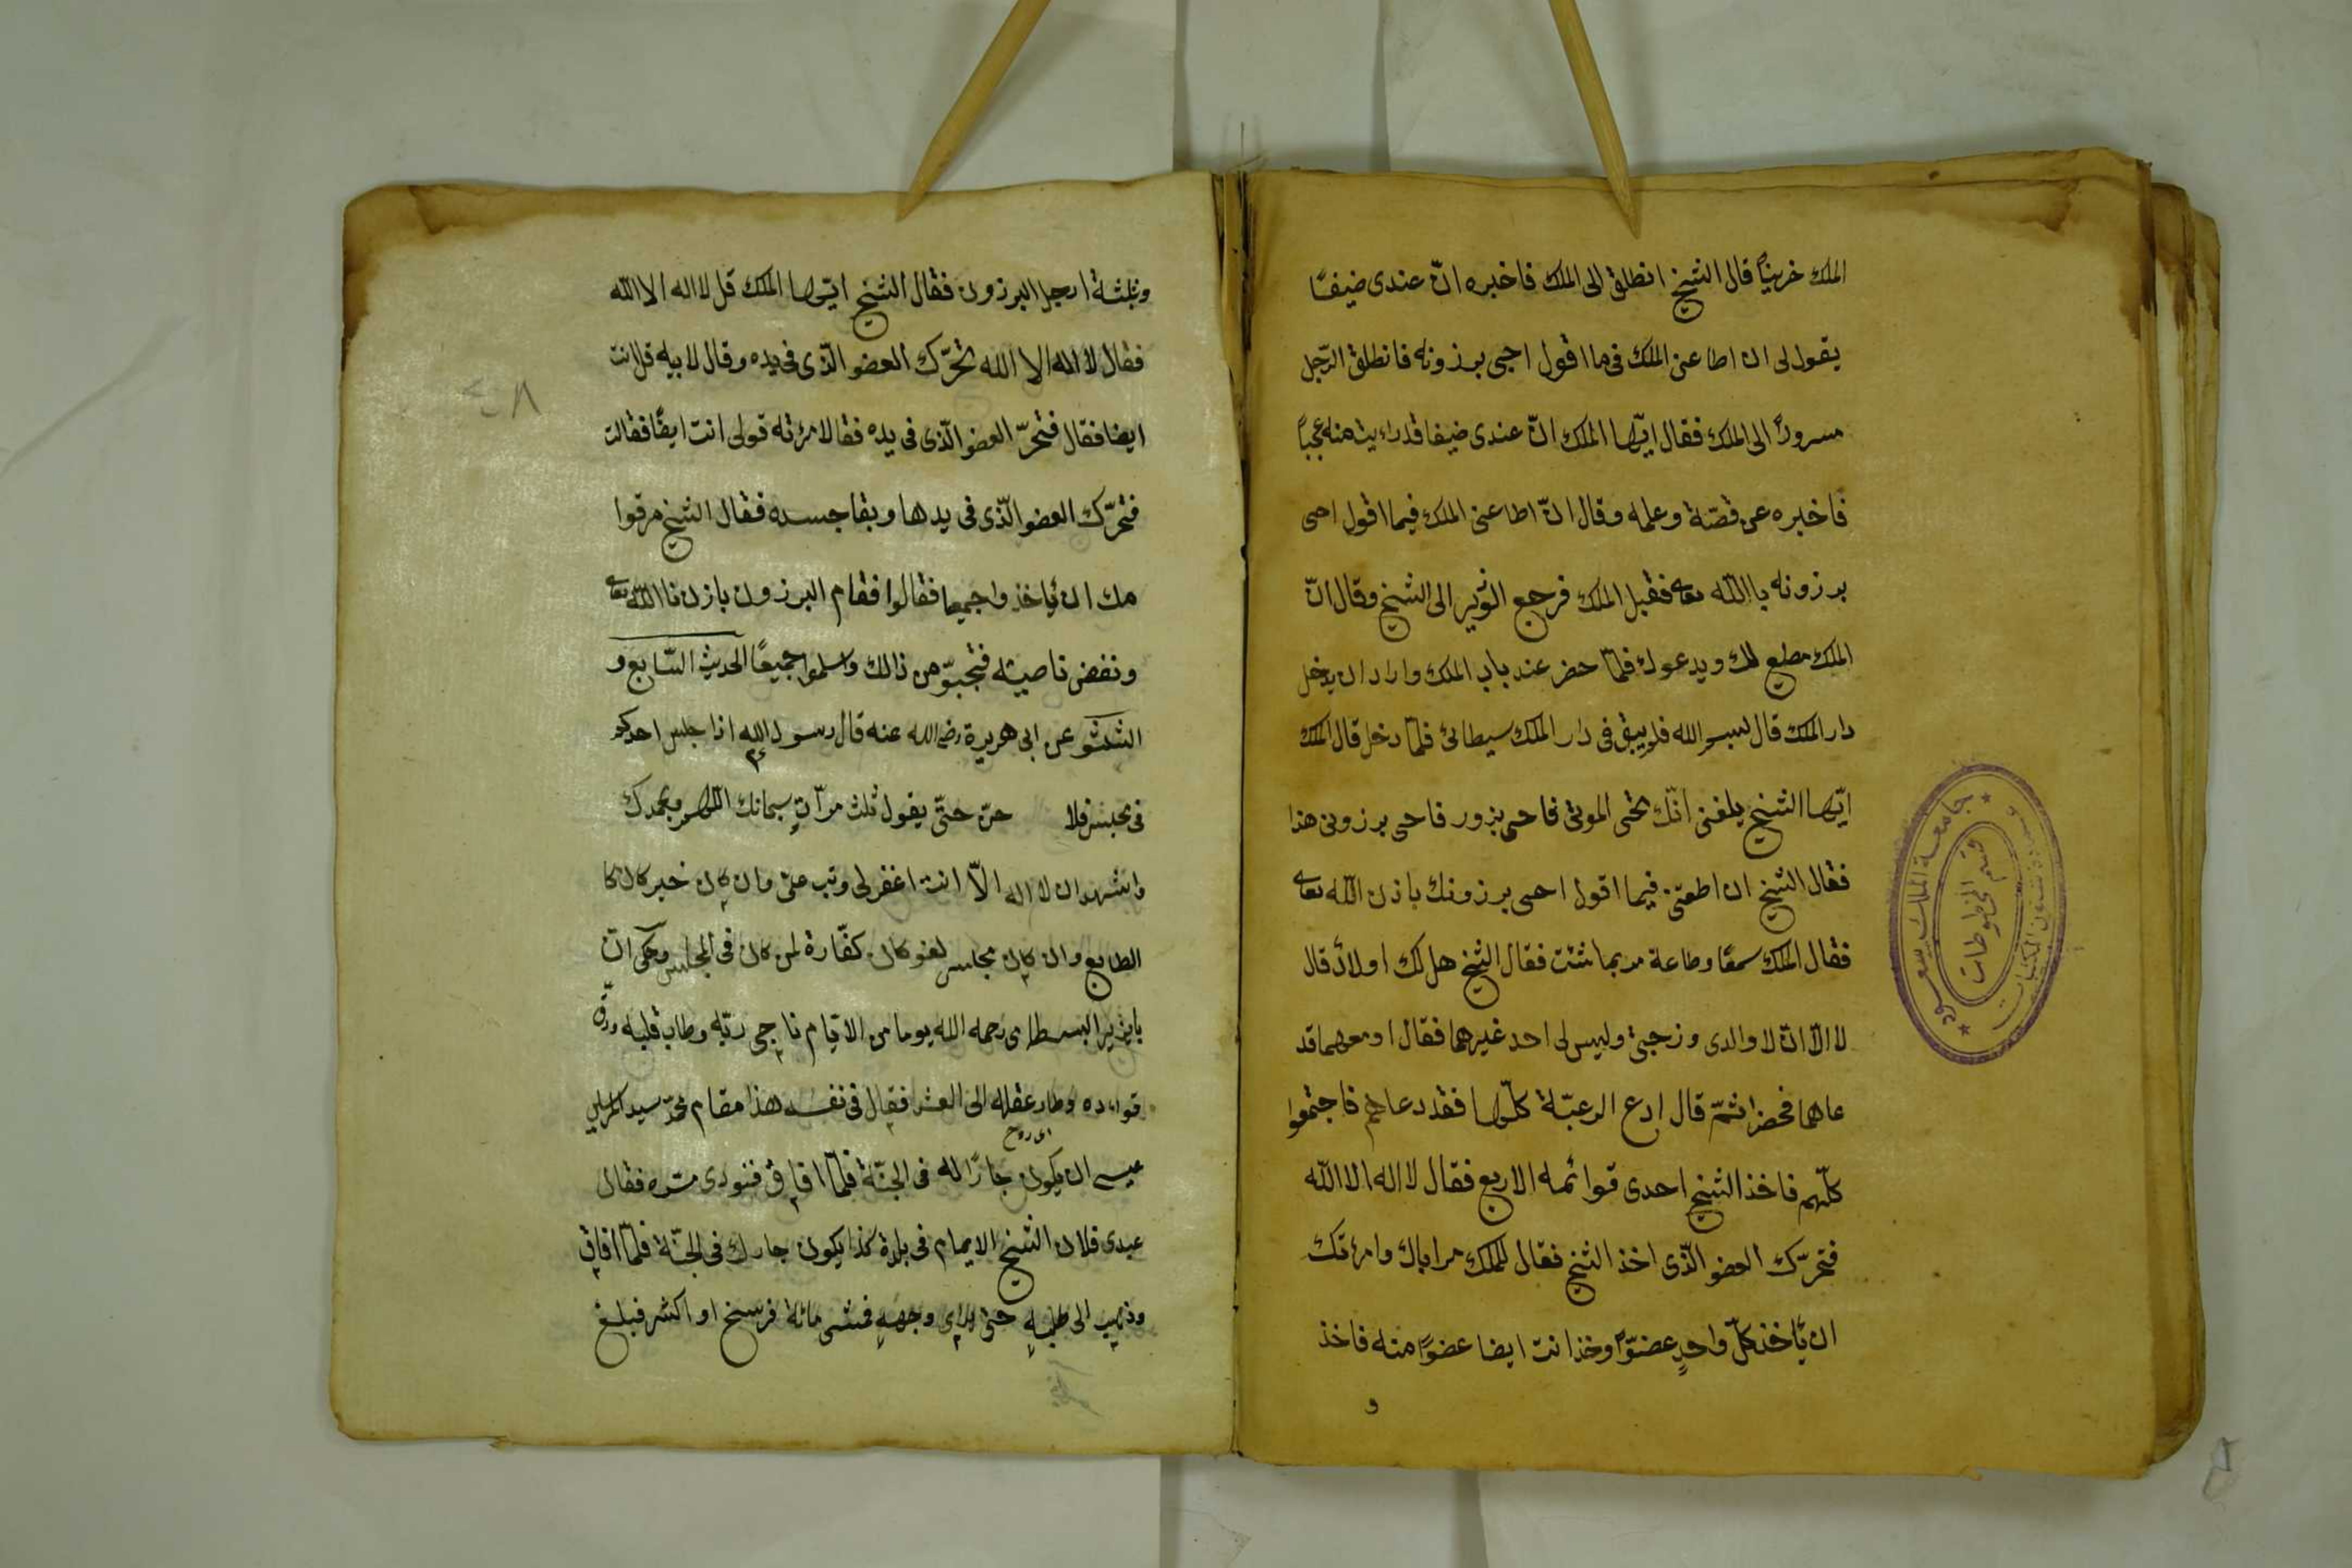 الملك خرينًا قال الشيخ انطلق الى الملك فاخبره انّ عندى ضيفًا
يقول لى ان اطاعنى الملك فى ما اقول احيى برزونه فانطلق الرّجل
مسرورًا الى الملك فقال ايّها الملك انّ عندى ضيفا قد رايت منه عجباً
فاخبره عن قصّة وعلمه وقال انّ اطاعنى الملك فيما اقول احى
برزونه باالله تعه فقبل الملك فرجع الوزير الى الشيخ وقال انّ
الملك مطيع لك ويدعوك فلمّا حضر عند باب الملك واراد ان يدخل
دار الملك قال بسم الله فلم يبق فى دار الملك سيطانى فلمّا دخل قال الملك
ايّها الشيخ بلغنى انّك تحى الموتى فاحى برزونى هذا
فقال الشيخ ان اطعتنى فيما اقول احى برزونك باذن الله تعه
فقال الملك سمعًا وطاعة مر بما شئت فقال الشيخ هل لك اولاد قال
لا الّا انّ لا والدى وزجتى وليس لى احد غيرهما فقال اومعهما قد
عاهما فحضرا ثمّ قال ادع الرعيّة كلّها فقد دعاهم فاجتمعوا
كلّهم فاخذ الشيخ احدى قوائمه الاربع فقال لا اله الا الله
فتحرّك العضو الّذى اخذ الشيخ فقال للملك مر اباك وامرئتك
ان يأخذ كلّ واحدٍ عضوًّا وخذ انت ايضا عضوًا منه فاخذ
و
وثلثة ارجل البرزون فقال الشيخ ايّها الملك قل لا اله الا الله
فقال لا اله الا الله تحرّك العضو الّذى فى يده وقال لابيه قل انت
ايضا فقال فتحرّ العضو الّذى فى يده فقال لامرئته قولى انت ايضًا فقالت
فتحرّك العضو الّذى فى يدها وبقا جسده فقال الشيخ مر قوا
مك ان يأخذوا جميعا فقالوا فقام البرزون باذننا الله تعه
ونفض ناصيته فتجبوّ من ذالك واسلموا جميعًا الحديث السّابع و
الثلثو عن ابى هريرة رضى الله عنه قال رسول الله ءم اذا جلس احدكم
فى مجلس فلا حنّ حتّى يقول ثلث مرّاتٍ سبحانك اللهم وبحمدك
واشهد ان لا اله الّا انت اغفرلى وتب علىّ وان كان خير كان كا
الطابع وان كان مجلس لغو كان كفّارة لمن كان فى المجلس وحكى انّ
بايزير البسطامى رحمه الله يوما من الايّام ناجى ربّه وطاب قلبه ورقّ
فواده وطار عقله الى العشر فقال فى نفسه هذا مقام محمّد سيد المرسلين
اى روح
عسى ان يكون جارًا له فى الجنّة فلمّا افاق فنودى سره فقال
عبدى فلان الشيخ الايمام فى بلدة كذا يكون جارك فى الجنّة فلمّا افاق
وذهب الى طلبه حتى يراى وجههِ فمشى مائة فرسخ او اكثر فبلغ
٤٨
جامعة الملك سعود
قسم المخطوطات
عمادة شئون المكتبات